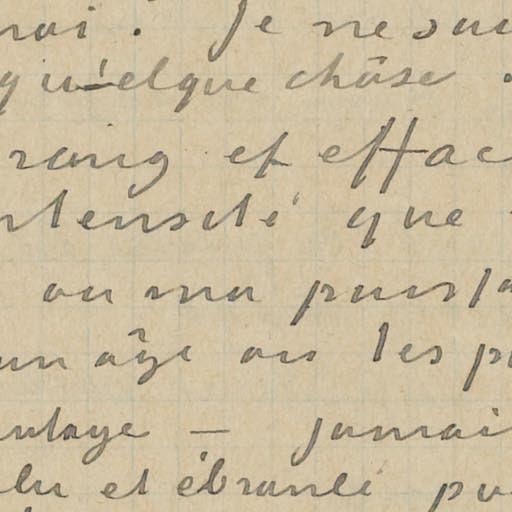 moi. Je ne sui
quelque chose.
rang et effac
ntensité que
ou ma puissa
un âge où les p
antage — jamai
lu et ébranlé pa